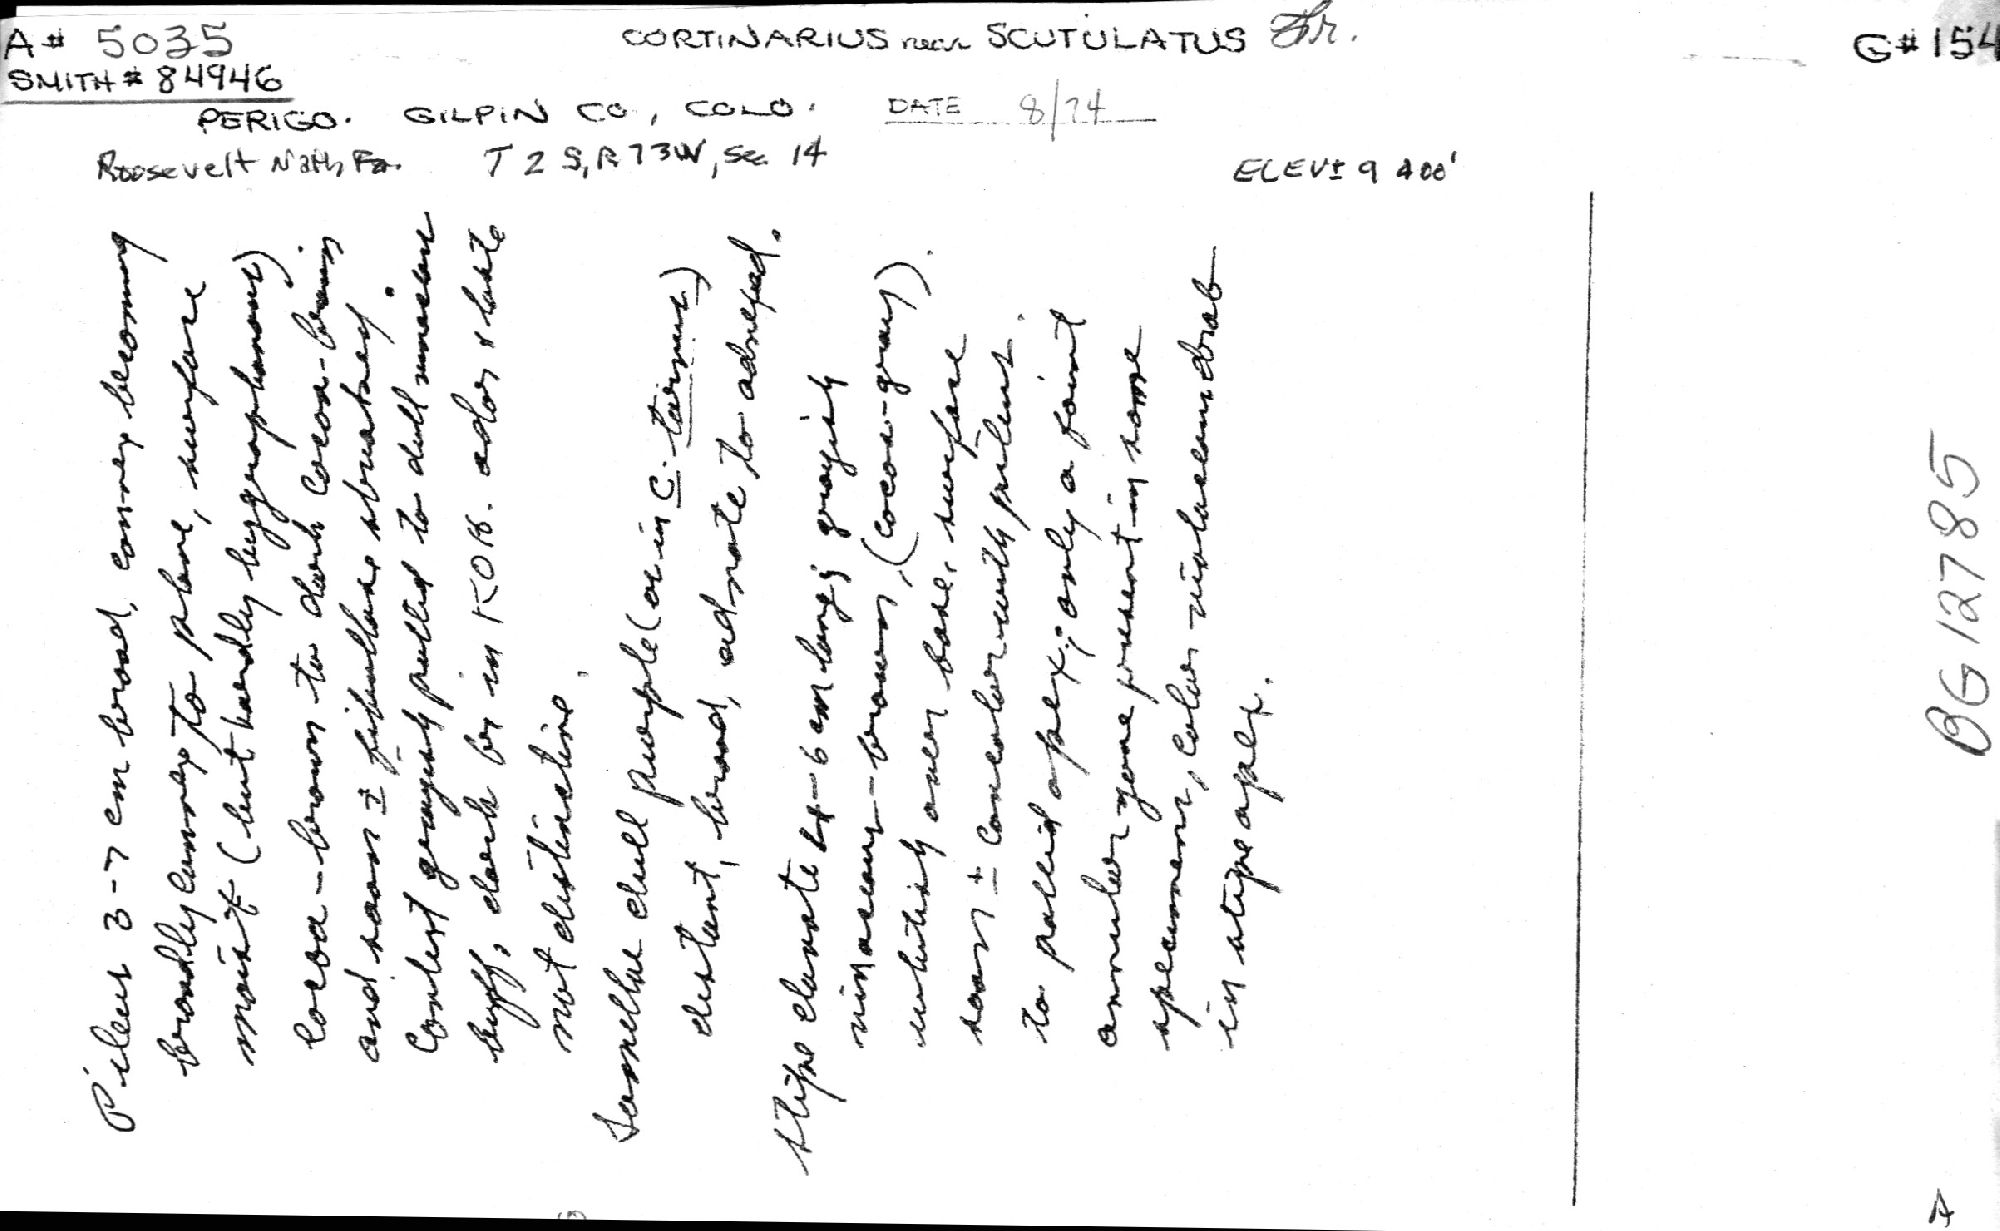 A# 5035
CORTINARIUS near SCUTULATUS Fr.
G# 154
SMITH # 84946
PERIGO. GILPIN CO, COLO. DATE 8/74
Roosevelt Natl. For. T 2 S, R 73W, Sec 14
ELEV ± 9400'
Pileus 3-7 cm broad, convex becoming
broadly convex to plane, surface
moist (but hardly hygrophanous)
cocoa-brown to dark cocoa-brown
and soon ± fibrillose streaked.
Context grayish pallid to dull vinaceous
buff, dark br in KOH. odor & taste
not distinctive.
Lamellae dull purple (as in C. torvus)
distant, broad, adnate to adnexed.
Stipe clavate 4-6 cm long; grayish
vinaceous-brown, (cocoa-gray).
whitish over base, surface
soon ± concolor with pileus
to pallid apex; only a faint
annular zone present in some
specimens, color violaceous drab
in stipe apex.
BG 12785